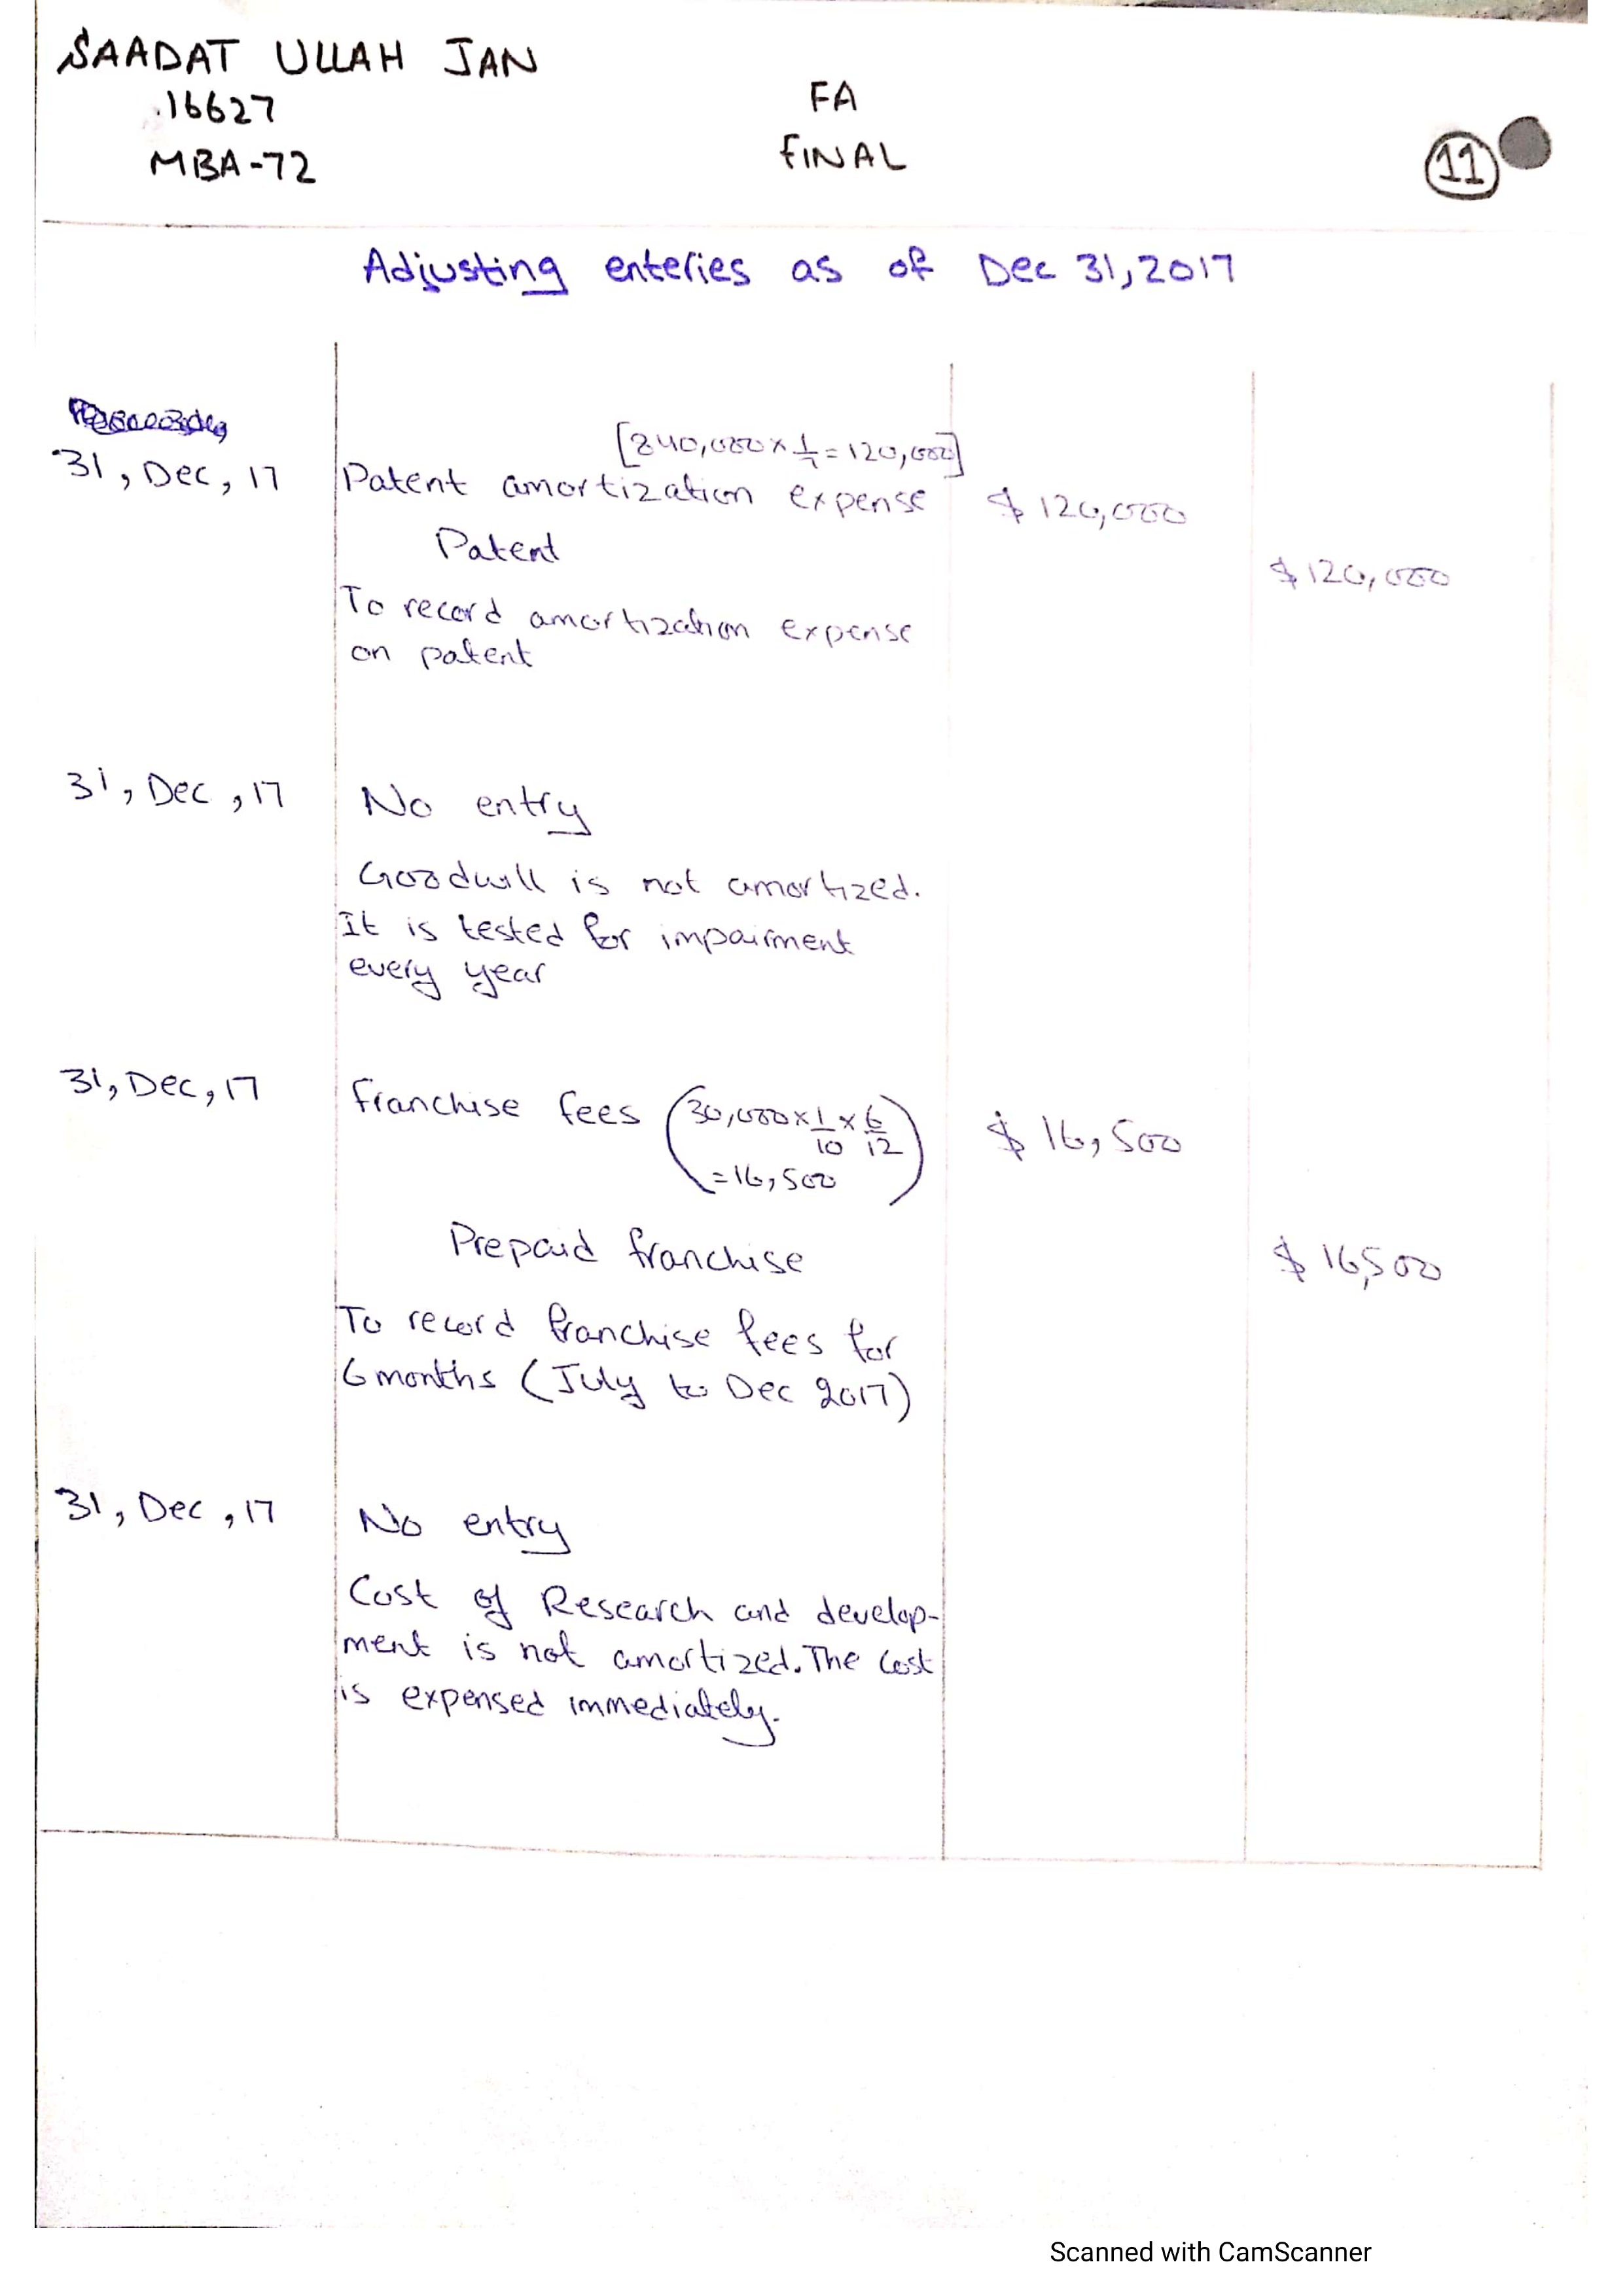 SAADAT ULLAH JAN
16627
FA
MBA-72
FINAL
11
Adjusting enteries as of Dec 31, 2017
[840,000 × 1/7 = 120,000]
31, Dec, 17 Patent amortization expense $ 120,000
Patent $ 120,000
To record amortization expense
on patent
31, Dec, 17 No entry
Goodwill is not amortized.
It is tested for impairment
every year
31, Dec, 17 Franchise fees (30,000 × 1/10 × 6/12 $ 16,500
= 16,500)
Prepaid franchise $ 16,500
To record franchise fees for
6 months (July to Dec 2017)
31, Dec, 17 No entry
Cost of Research and develop-
ment is not amortized. The cost
is expensed immediately.
Scanned with CamScanner